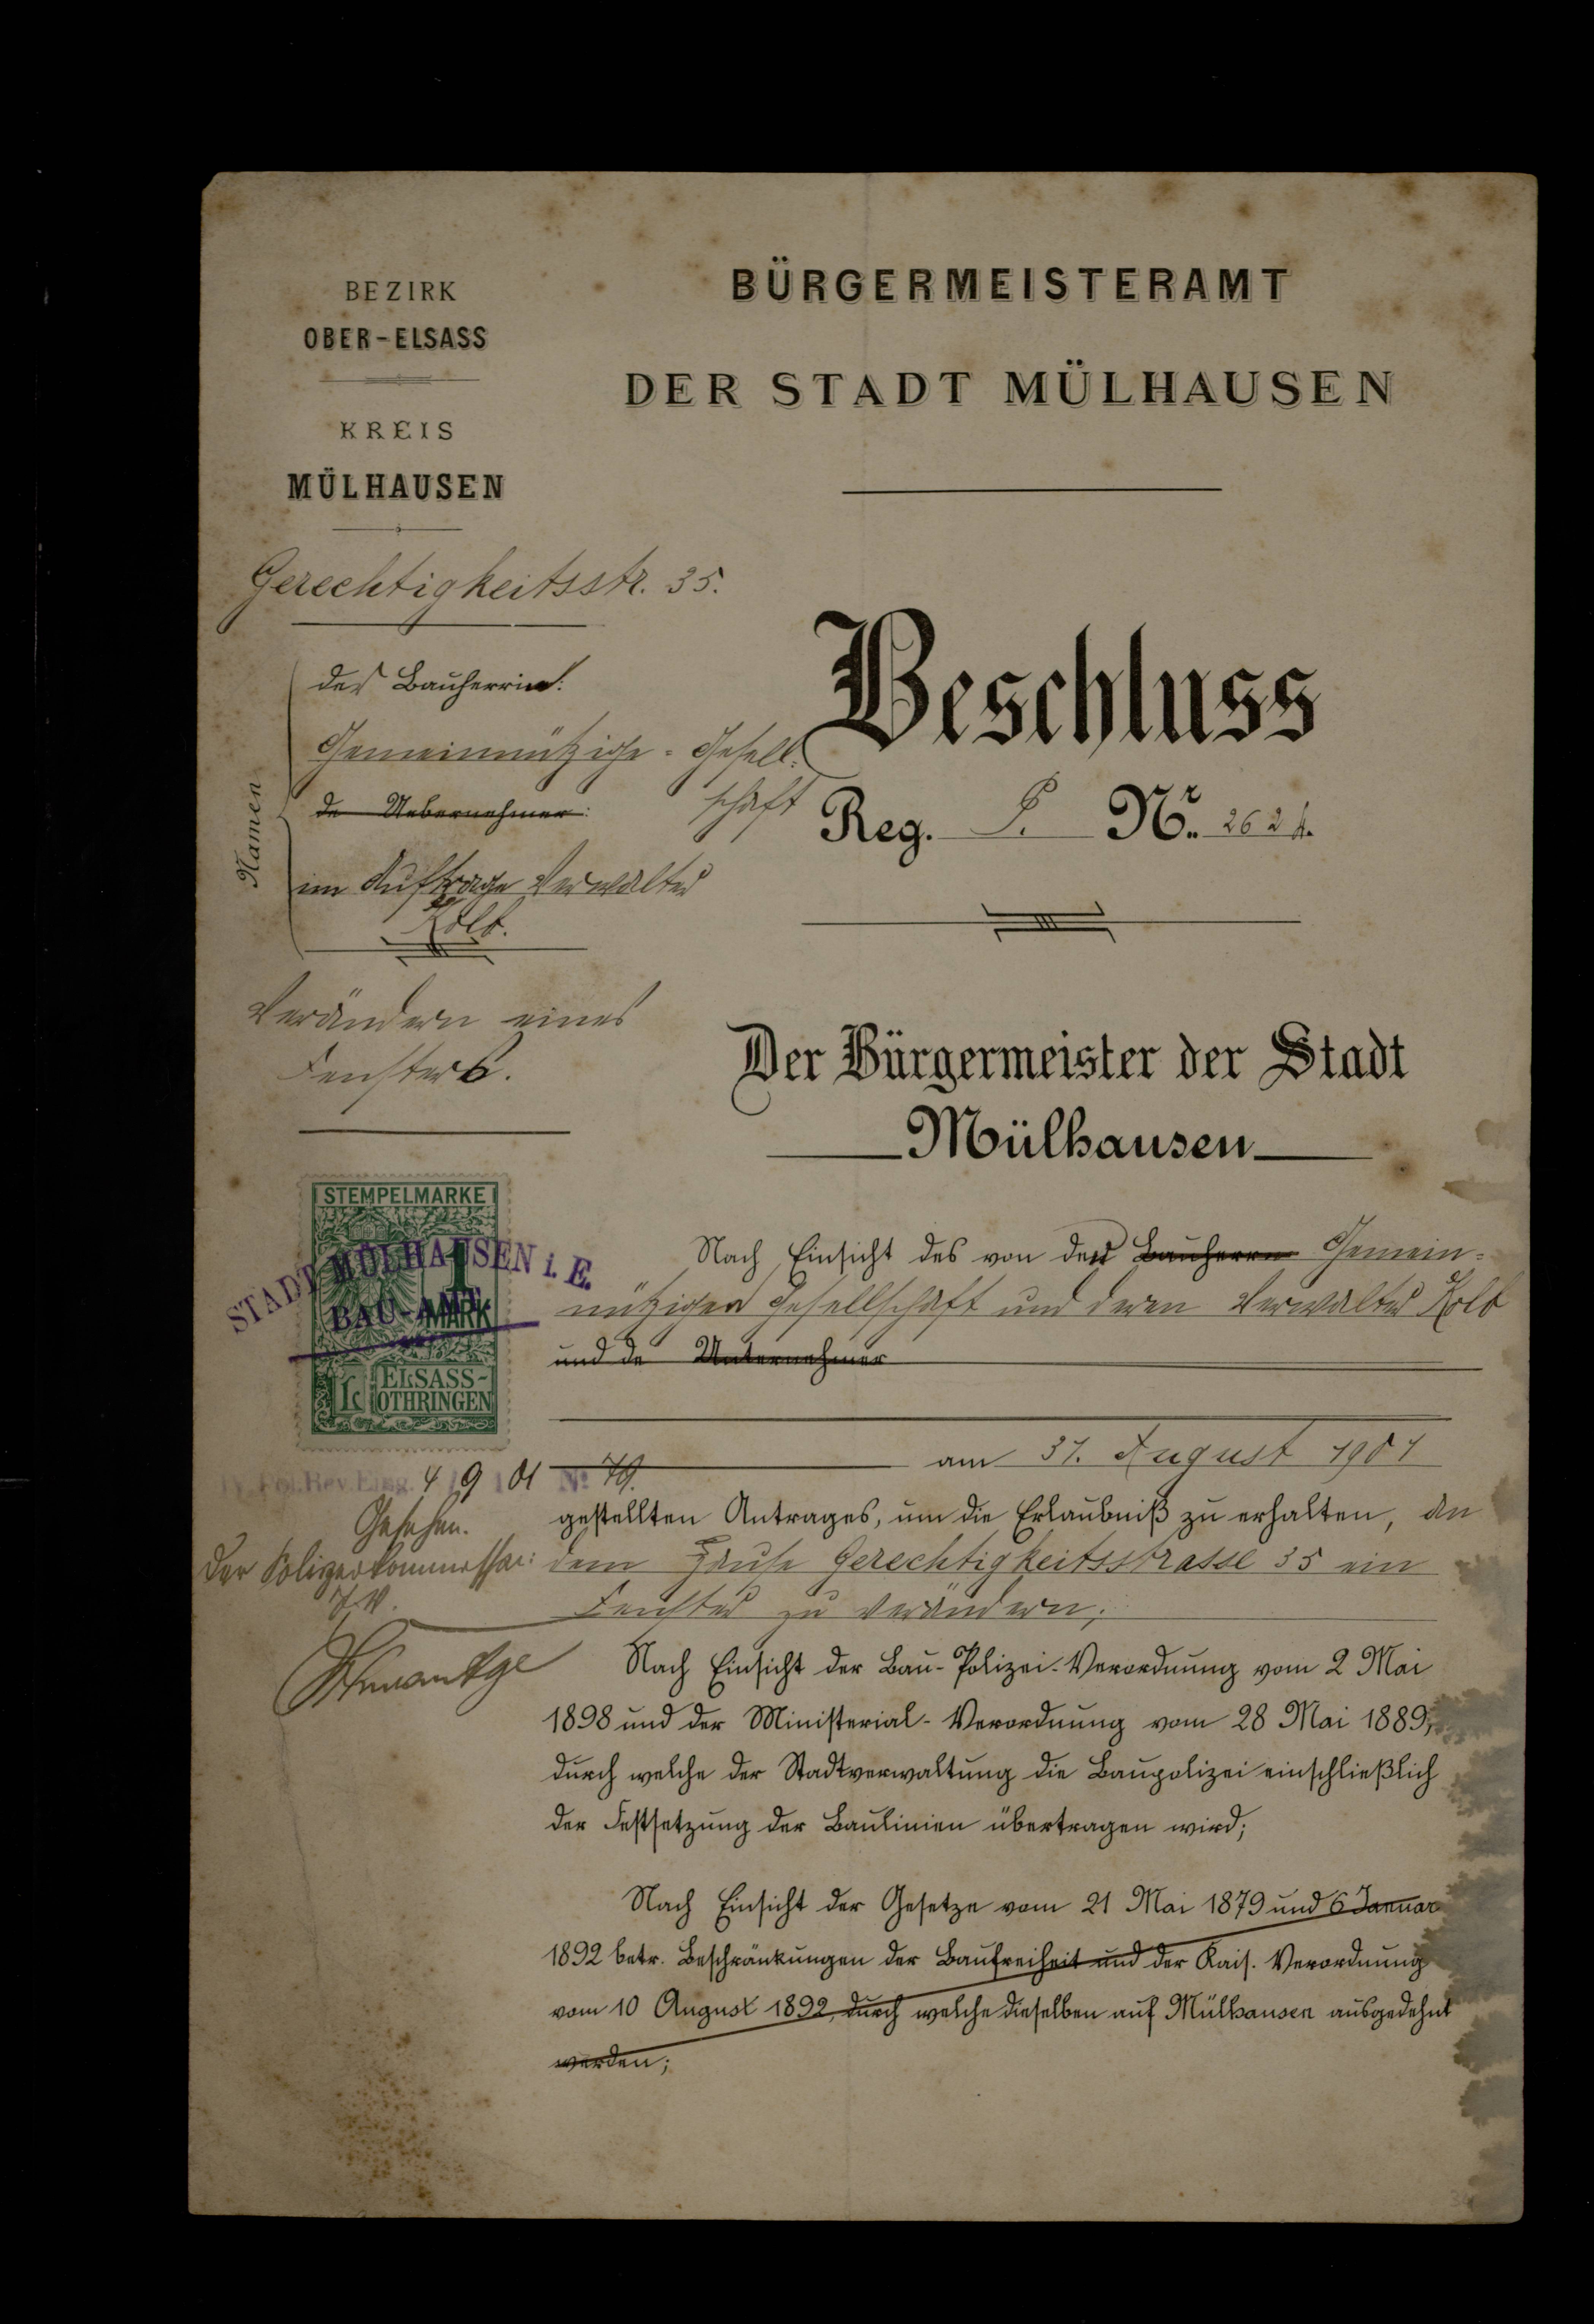 BEZIRK
OBER-ELSASS
KREIS
MÜLHAUSEN
BÜRGERMEISTERAMT
DER STADT MÜLHAUSEN
Gerechtigkeitsstr. 35.
Namen
der Bauherrin:
Gemeinnützige-Gesell-
schaft
de Uebernehmer:
im Auftrage Verwalter
Kolb.
Verändern eines
Fensters.
Beschluss
Reg. Nr. 2624.
Der Bürgermeister der Stadt
Mülhausen
STEMPELMARKE
1
MARK
ELSASS-
LOTHRINGEN
STADT MÜLHAUSEN i. E.
BAU-AMT
IV. Pol.Rev. Eing. 4 9 01 No 79.
Gesehen.
Der Polizeikommissar:
Nach Einsicht des von der Bauherrn Gemein-
nützigen Gesellschaft und deren Verwalter Kolb
und de Unternehmer
am 31. August 1901
gestellten Antrages, um die Erlaubniß zu erhalten, an
dem Hause Gerechtigkeitsstrasse 35 ein
Fenster zu verändern;
Nach Einsicht der Bau-Polizei-Verordnung vom 2 Mai
1898 und der Ministerial-Verordnung vom 28 Mai 1889,
durch welche der Stadtverwaltung die Baupolizei einschließlich
der Festsetzung der Baulinien übertragen wird;
Nach Einsicht der Gesetze vom 21 Mai 1879 und 6 Januar
1892 betr. Beschränkungen der Baufreiheit und der Kais. Verordnung
vom 10 August 1892, durch welche dieselben auf Mülhausen ausgedehnt
werden;